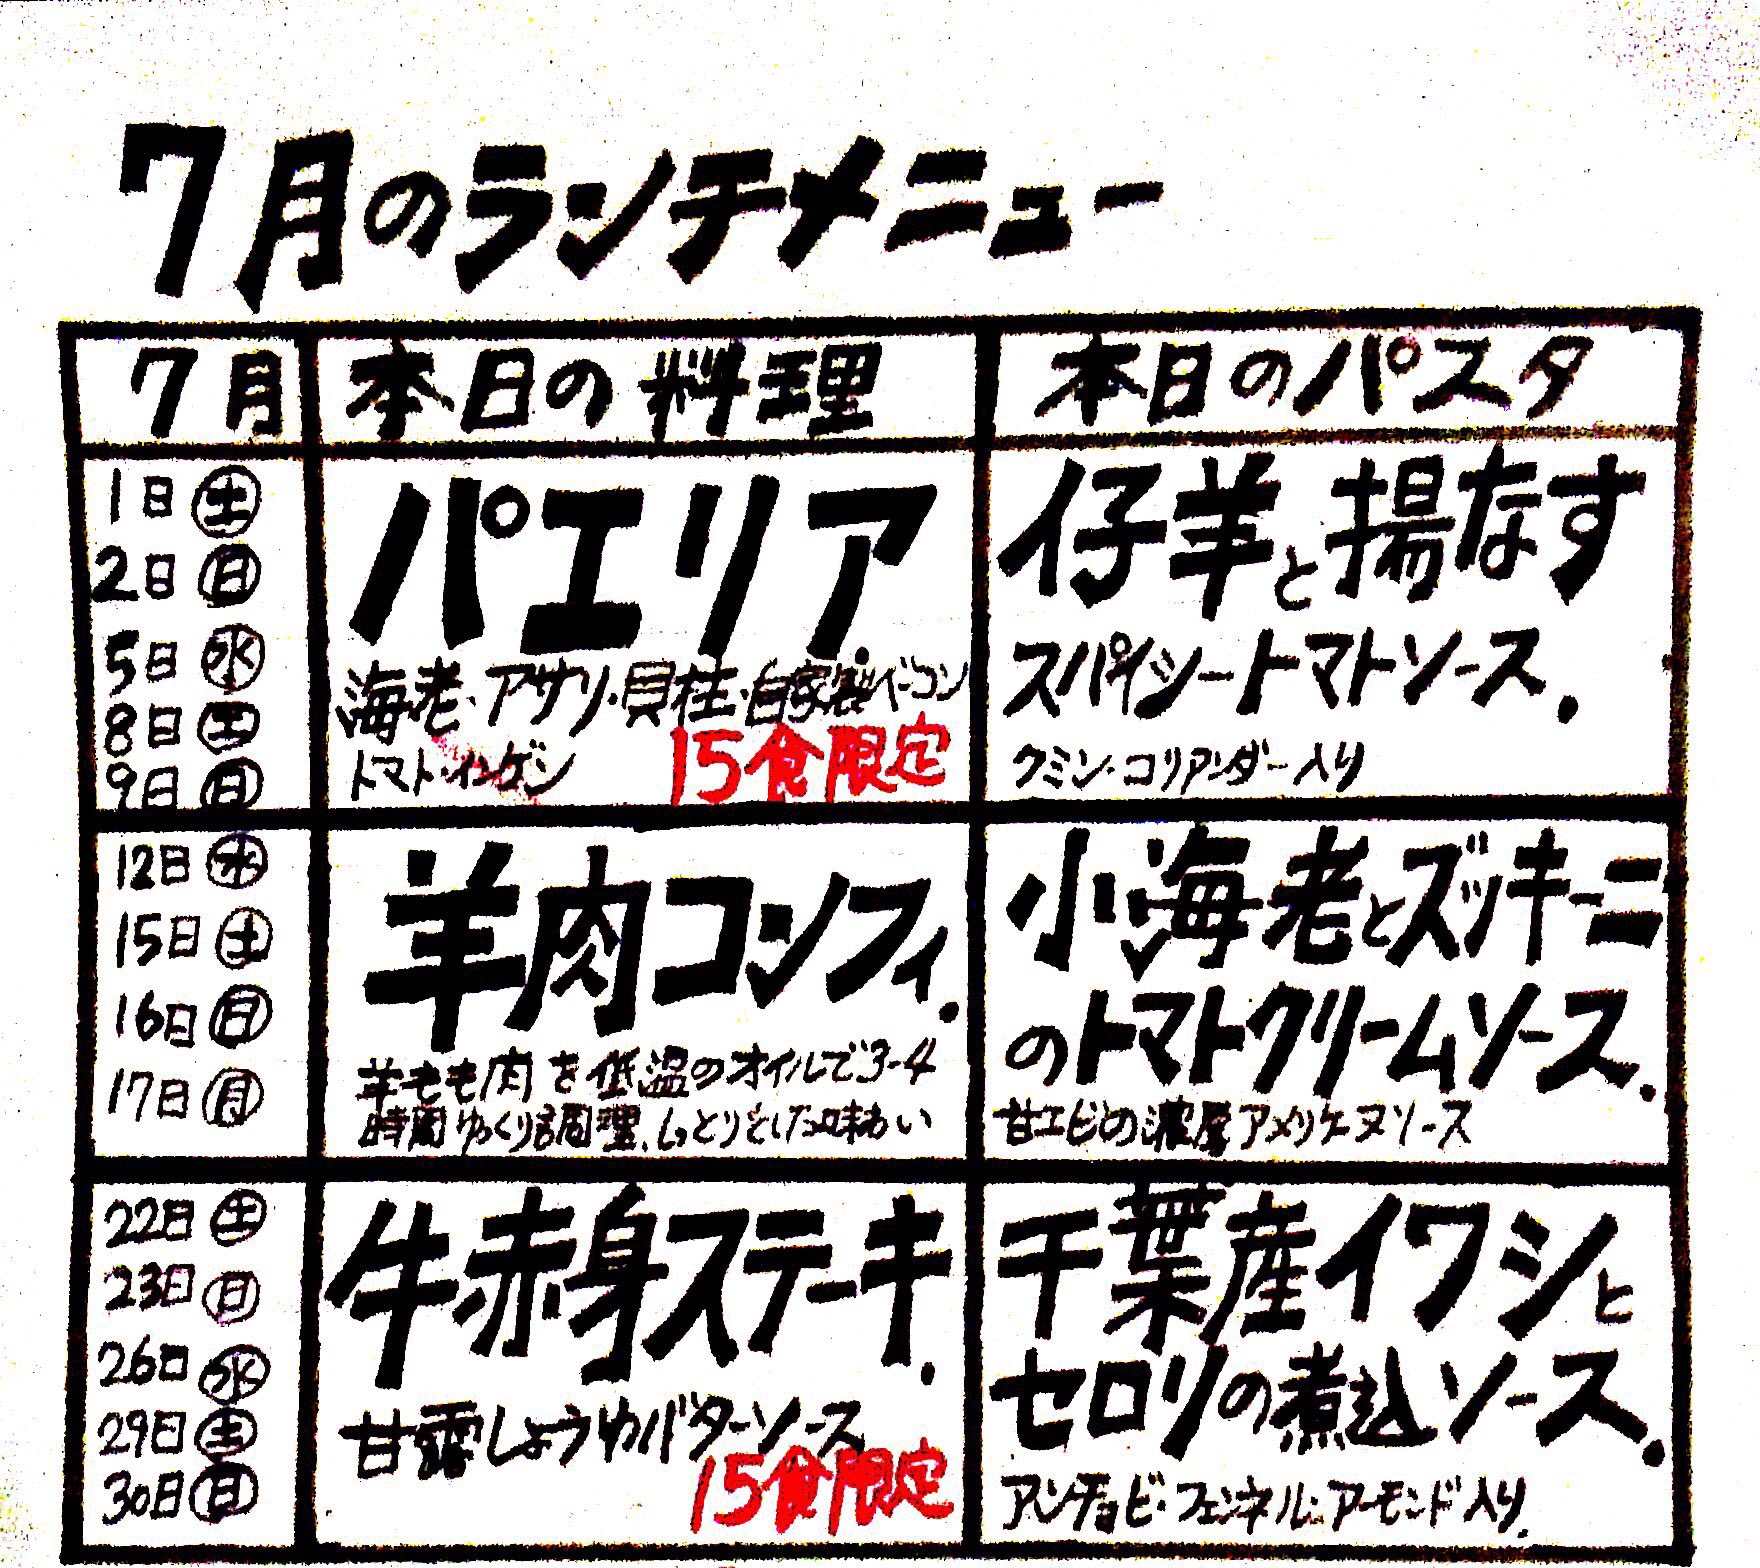 7月のランチメニュー
7月
本日の料理
本日のパスタ
1日㊏
2日㊐
5日㊌
8日㊏
9日㊐
パエリア.
海老・アサリ・貝柱・自家製ベーコン
トマト・インゲン
15食限定
仔羊と揚なす
スパイシートマトソース.
クミン・コリアンダー入り
12日㊌
15日㊏
16日㊐
17日㊊
羊肉コンフィ.
羊もも肉を低温のオイルで3-4
時間ゆっくり調理.しっとりとした味わい
小海老とズッキーニ
のトマトクリームソース.
甘エビの濃厚アメリケーヌソース
22日㊏
23日㊐
26日㊌
29日㊏
30日㊐
牛赤身ステーキ.
甘露しょうゆバターソース
15食限定
千葉産イワシと
セロリの煮込ソース.
アンチョビ・フェンネル・アーモンド入り.